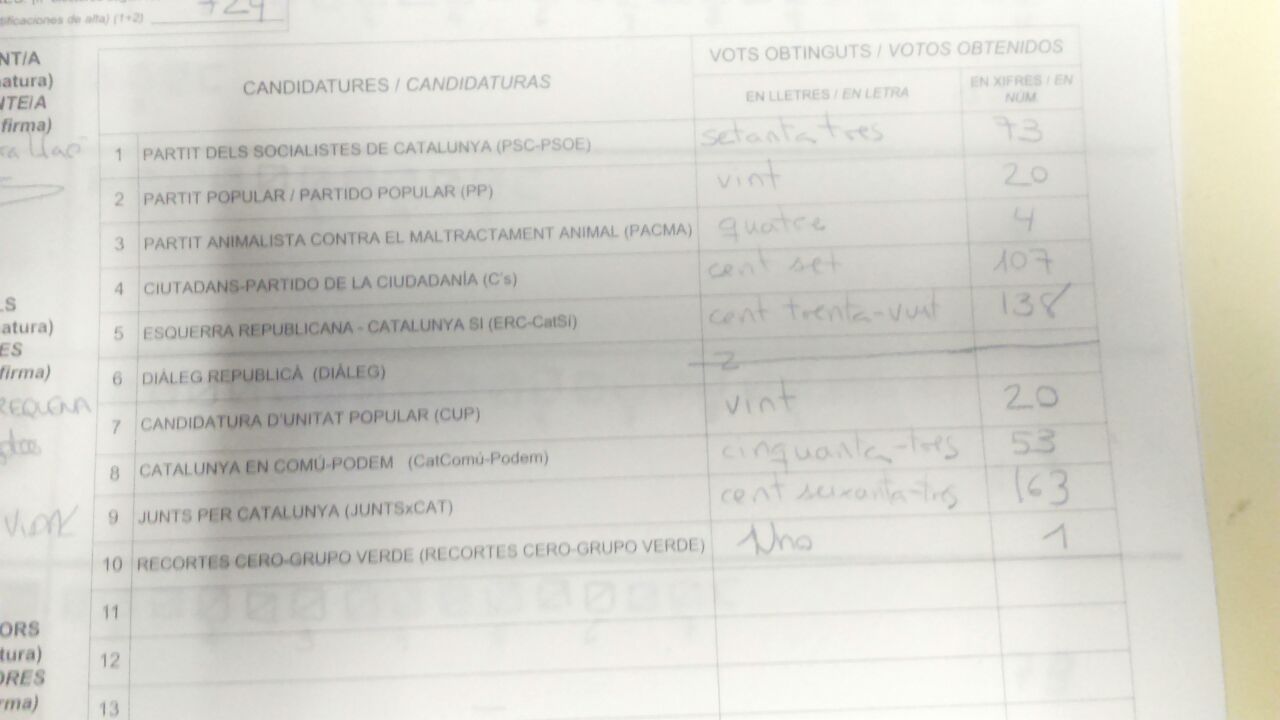 724
tificaciones de alta) (1+2)
NT/A
atura)
NTE/A
firma)
CANDIDATURES / CANDIDATURAS
VOTS OBTINGUTS / VOTOS OBTENIDOS
EN LLETRES / EN LETRA
EN XIFRES / EN NÚM.
1 PARTIT DELS SOCIALISTES DE CATALUNYA (PSC-PSOE) setanta tres 73
2 PARTIT POPULAR / PARTIDO POPULAR (PP) vint 20
3 PARTIT ANIMALISTA CONTRA EL MALTRACTAMENT ANIMAL (PACMA) quatre 4
4 CIUTADANS-PARTIDO DE LA CIUDADANÍA (C's) cent set 107
5 ESQUERRA REPUBLICANA - CATALUNYA SI (ERC-CatSí) cent trenta-vuit 138
6 DIÀLEG REPUBLICÀ (DIÀLEG)
7 CANDIDATURA D'UNITAT POPULAR (CUP) vint 20
8 CATALUNYA EN COMÚ-PODEM (CatComú-Podem) cinquanta-tres 53
9 JUNTS PER CATALUNYA (JUNTSxCAT) cent seixanta-tres 163
10 RECORTES CERO-GRUPO VERDE (RECORTES CERO-GRUPO VERDE) Uno 1
11
12
13
LS
atura)
ES
firma)
REQUENA
VIDAL
ORS
tura)
ORES
rma)